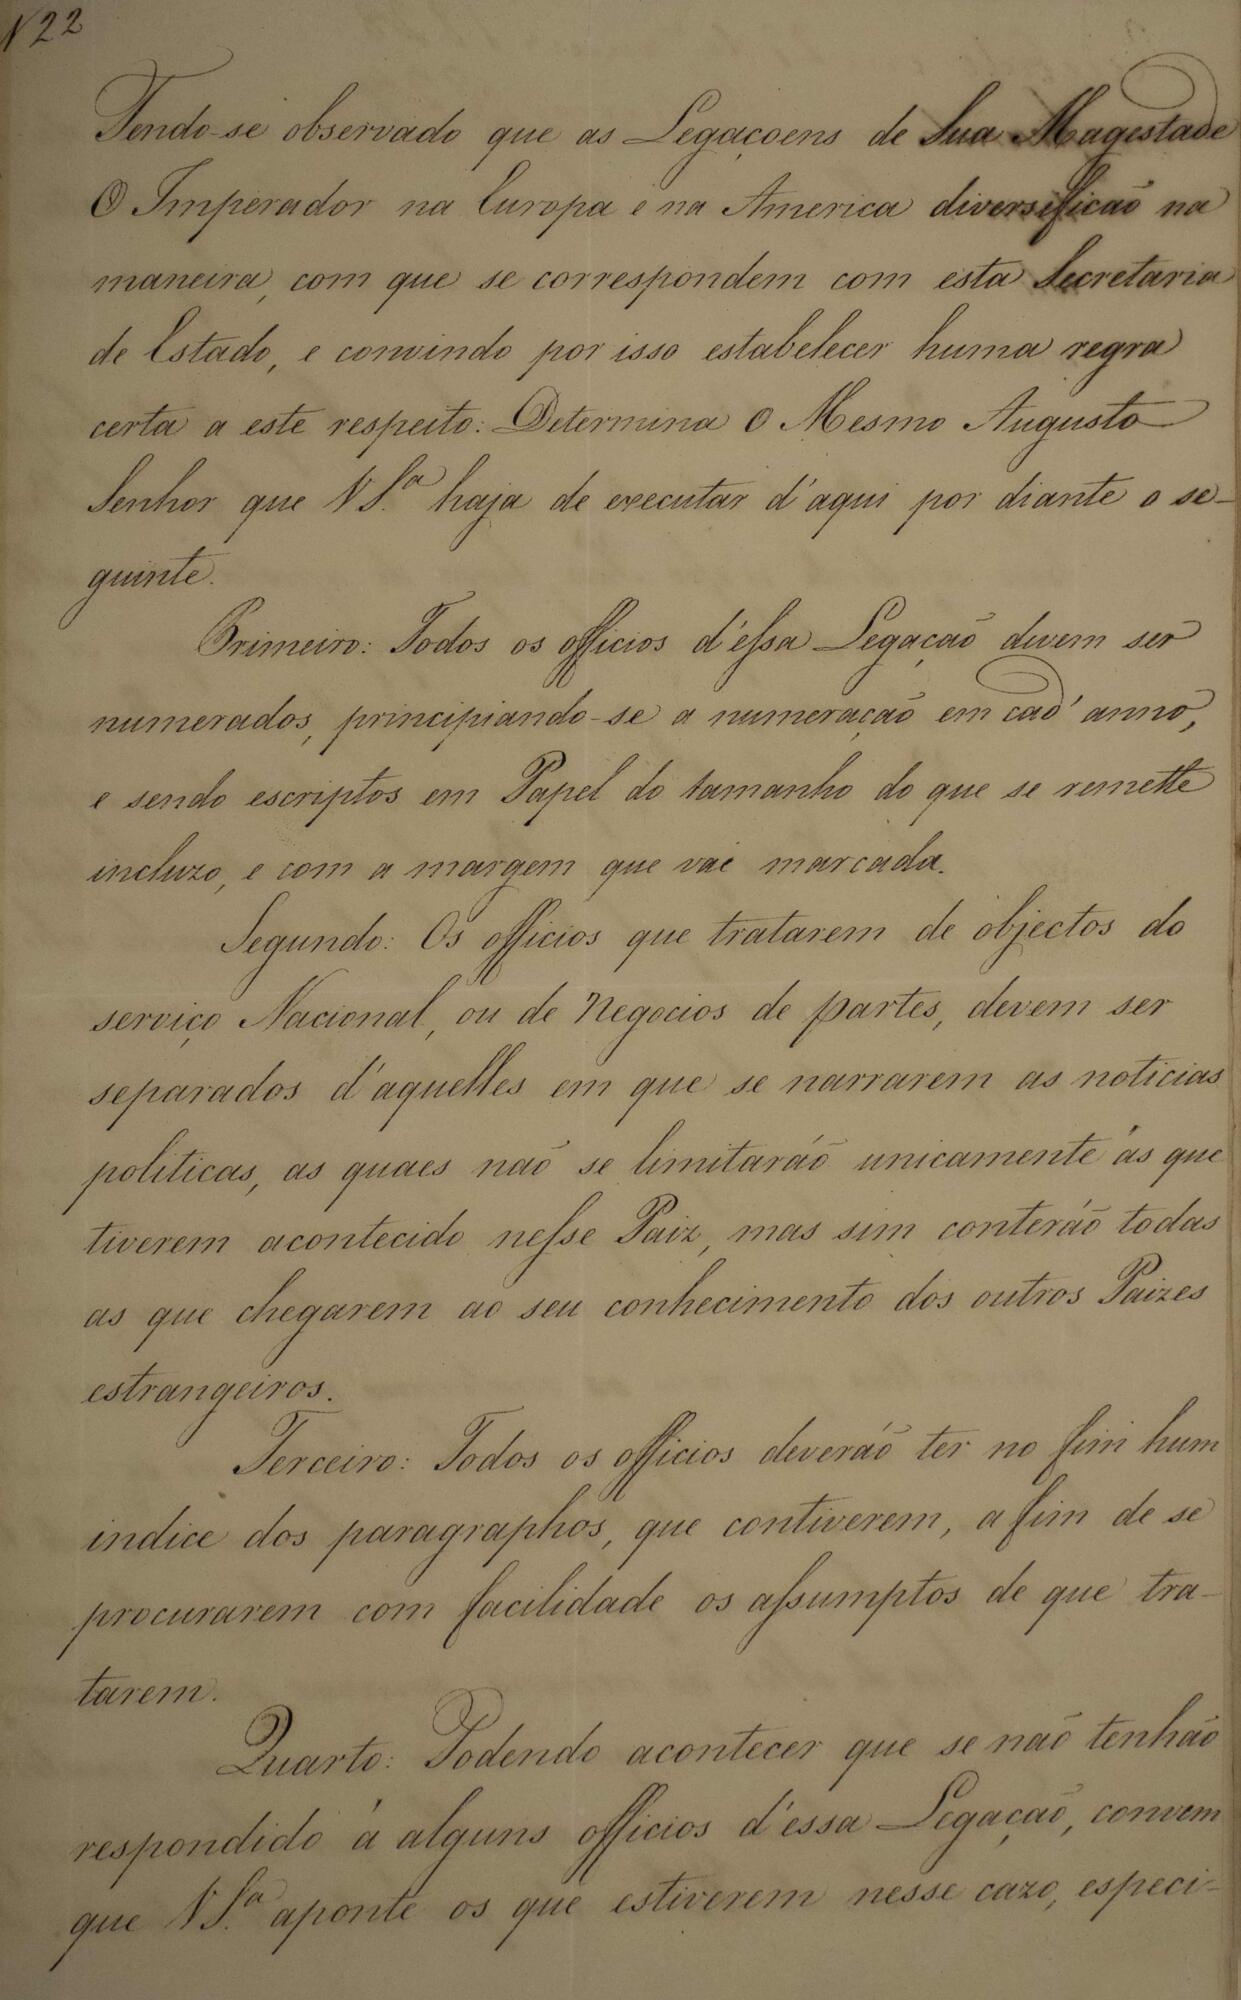 N 22
Tendo-se observado que as Legaçoens de Sua Magestade
O Imperador na Europa e na America diversificaõ na
maneira, com que se correspondem com esta Secretaria
de Estado, e convindo por isso estabelecer huma regra
certa a este respeito: Determina O Mesmo Augusto
Senhor que V S.ª haja de executar d'aqui por diante o se-
guinte.
Primeiro: Todos os officios d'essa Legaçaõ devem ser
numerados, principiando-se a numeraçaõ em cad' anno,
e sendo escriptos em Papel do tamanho do que se remette
incluzo, e com a margem que vai marcada.
Segundo: Os officios que tratarem de objectos do
serviço Nacional, ou de Negocios de partes, devem ser
separados d'aquelles em que se narrarem as noticias
politicas, as quaes naõ se limitaráõ unicamente ás que
tiverem acontecido nesse Paiz, mas sim conteráõ todas
as que chegarem ao seu conhecimento dos outros Paizes
estrangeiros.
Terceiro: Todos os officios deveráõ ter no fim hum
indice dos paragraphos, que contiverem, a fim de se
procurarem com facilidade os assumptos de que tra-
tarem.
Quarto: Podendo acontecer que se naõ tenhaõ
respondido á alguns officios d'essa Legaçaõ, convem
que V S.ª aponte os que estiverem nesse cazo, especi-